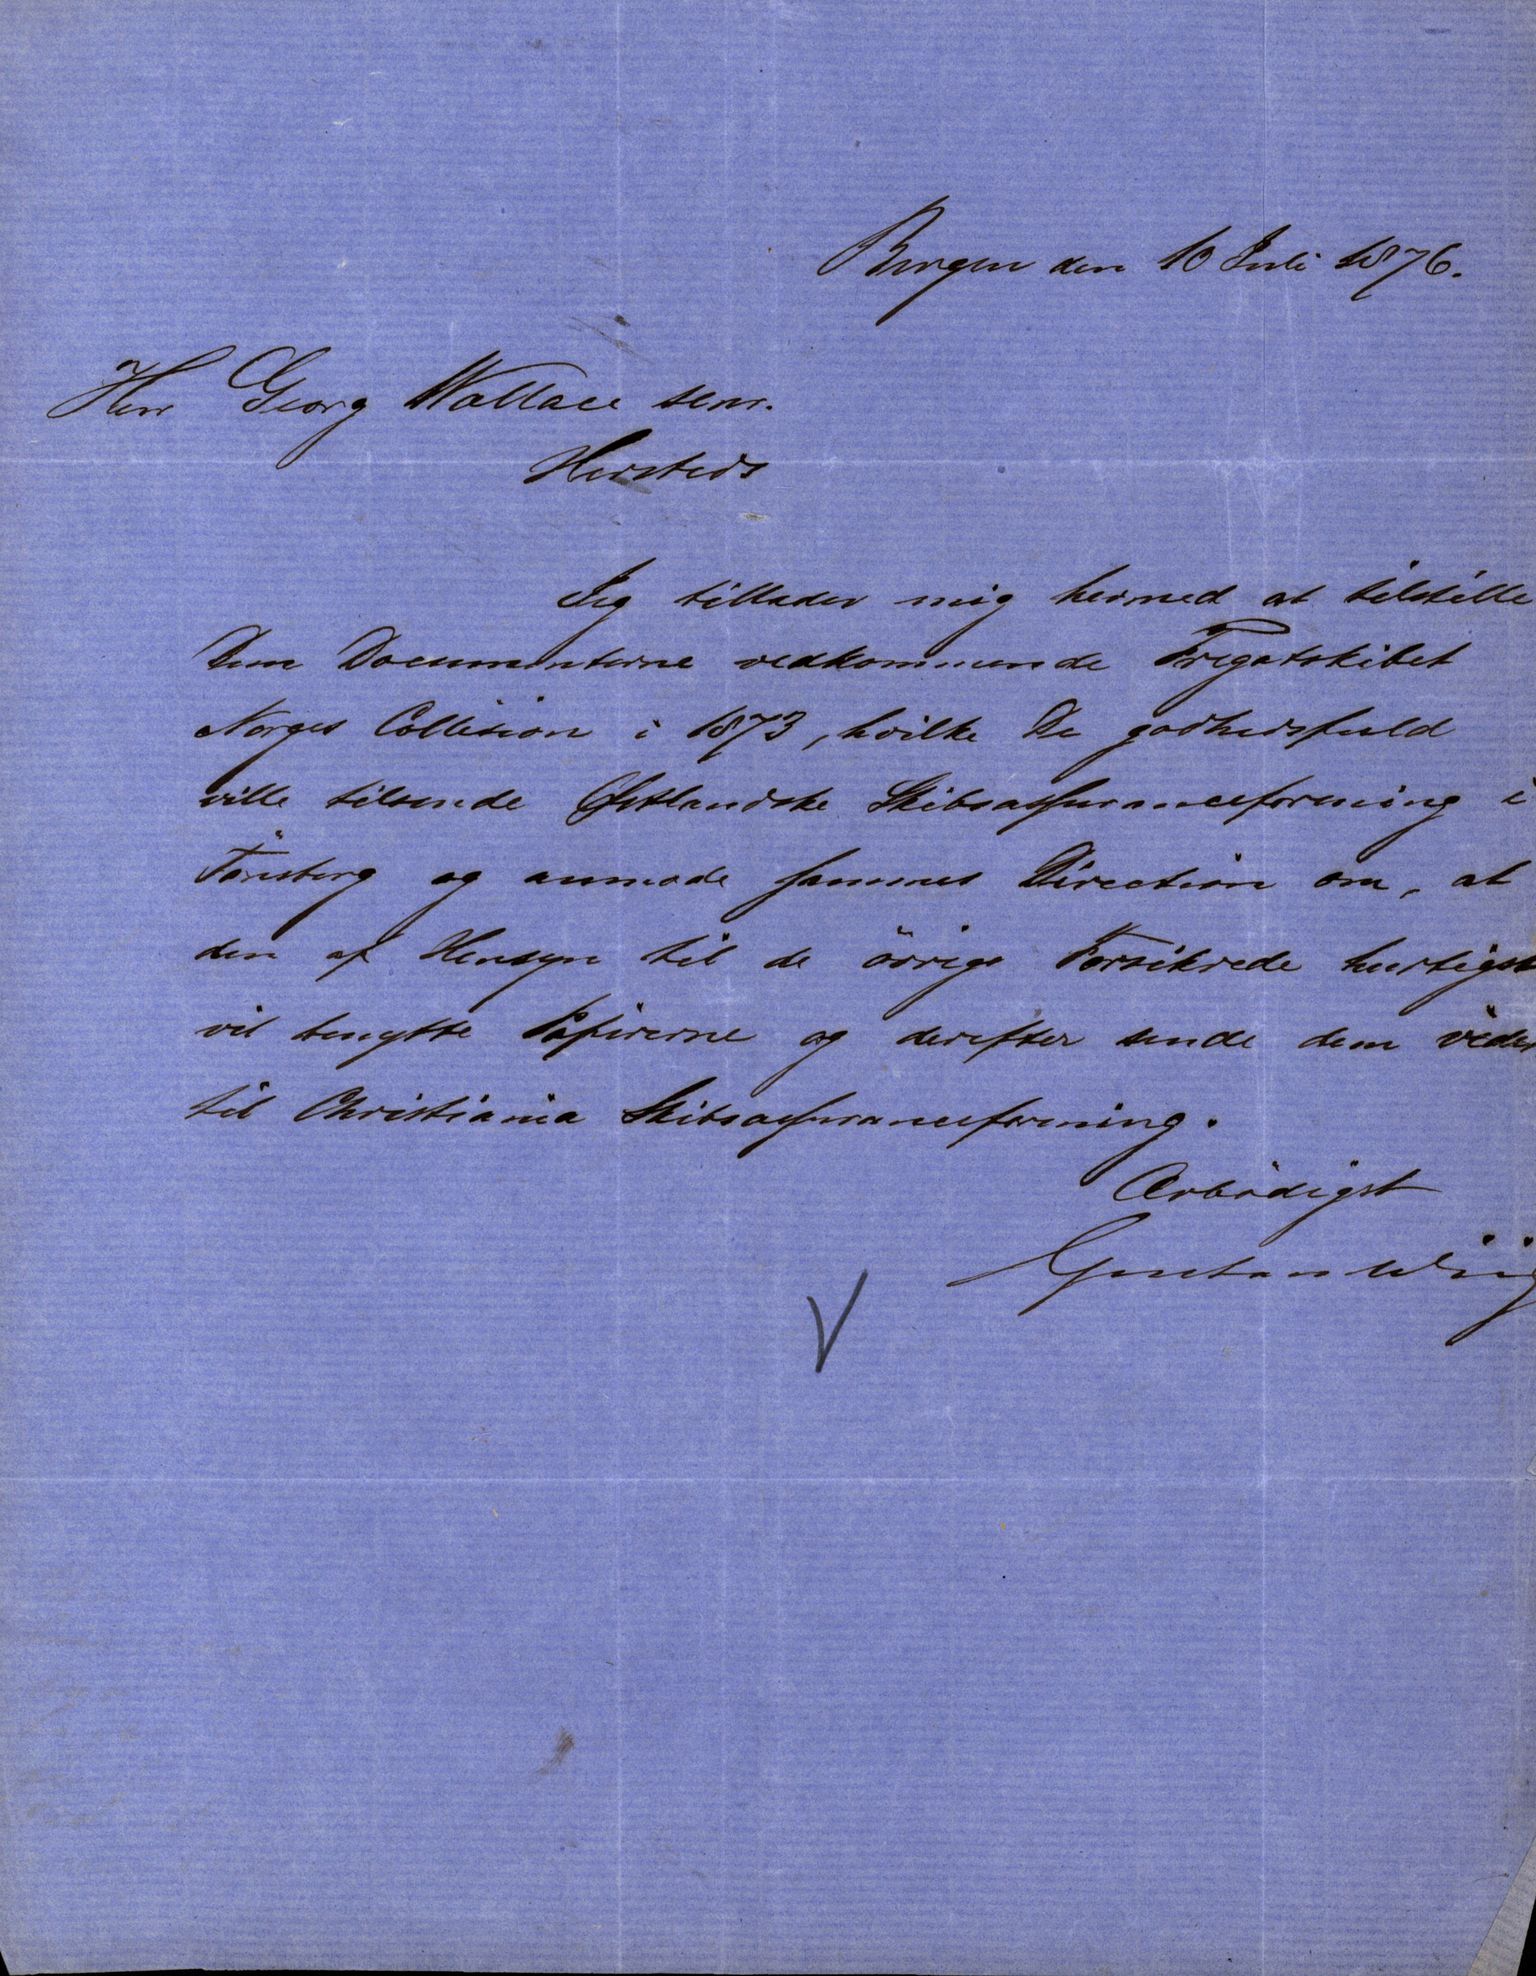 Bergen den 10 Juli 1876.
Herr Georg Wallace senr.
Hersteds
Jeg tillader mig hermed at tilstille
Dem Documenterne vedkommende Fregatskibet
Norges Collision i 1873, hvilke De godhedsfuld
ville tilsende Østlandske Skibsassuranceforening i
Tönsberg og anmode sammes Direction om, at
den af Hensyn til de övrige Forsikrede hurtigst
vil benytte Papirerne og derefter sende dem vider
til Christiania Skibsassuranceforening.
Ærbödigst
Gustav